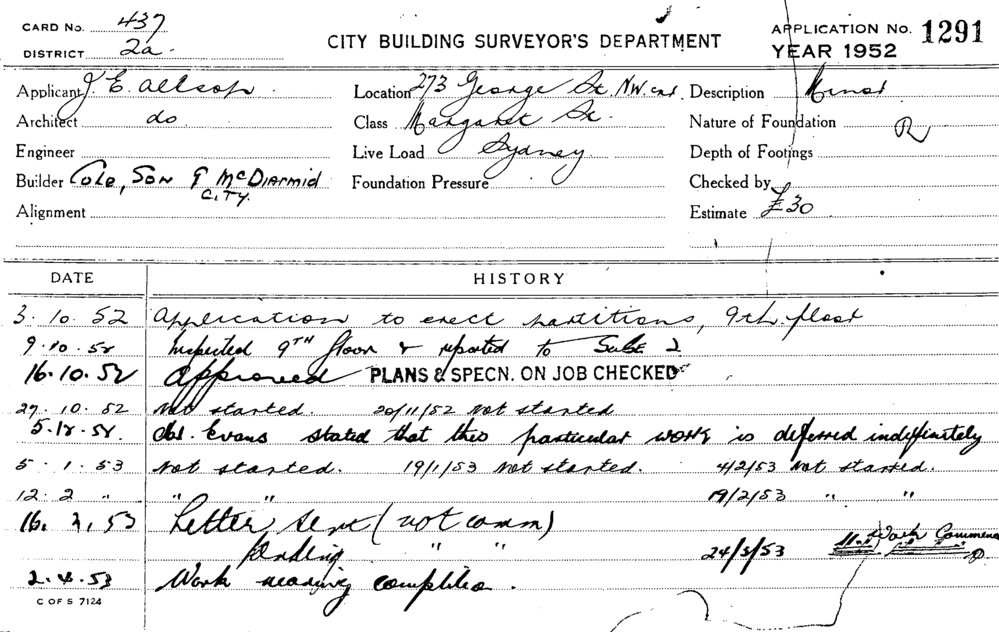 CARD No. 437
DISTRICT 2a.
CITY BUILDING SURVEYOR'S DEPARTMENT
APPLICATION No. 1291
YEAR 1952
Applicant J. E. Allsop
Architect do
Engineer
Builder Cole, Son & McDiarmid
CITY.
Alignment
Location 273 George St. N.W. cnr.
Class Margaret St.
Live Load Sydney
Foundation Pressure
Description Minor
Nature of Foundation R
Depth of Footings
Checked by
Estimate £30
DATE HISTORY
3.10.52 Application to erect partitions, 9th. floor
9.10.52 Inspected 9TH floor & reported to
16.10.52 Approved PLANS & SPECN. ON JOB CHECKED
27.10.52 Not started. 20/11/52 Not started
5.12.52. Evans stated that this particular work is deferred indefinitely
5.1.53 Not started. 19/1/53 Not started. 4/2/53 Not started.
12.2 " " " 19/2/53 " "
16.3.53 Letter sent (not comm)
pending " " 24/3/53 Work Commenced
2.4.53 Work nearing completion.
C OF S 7124